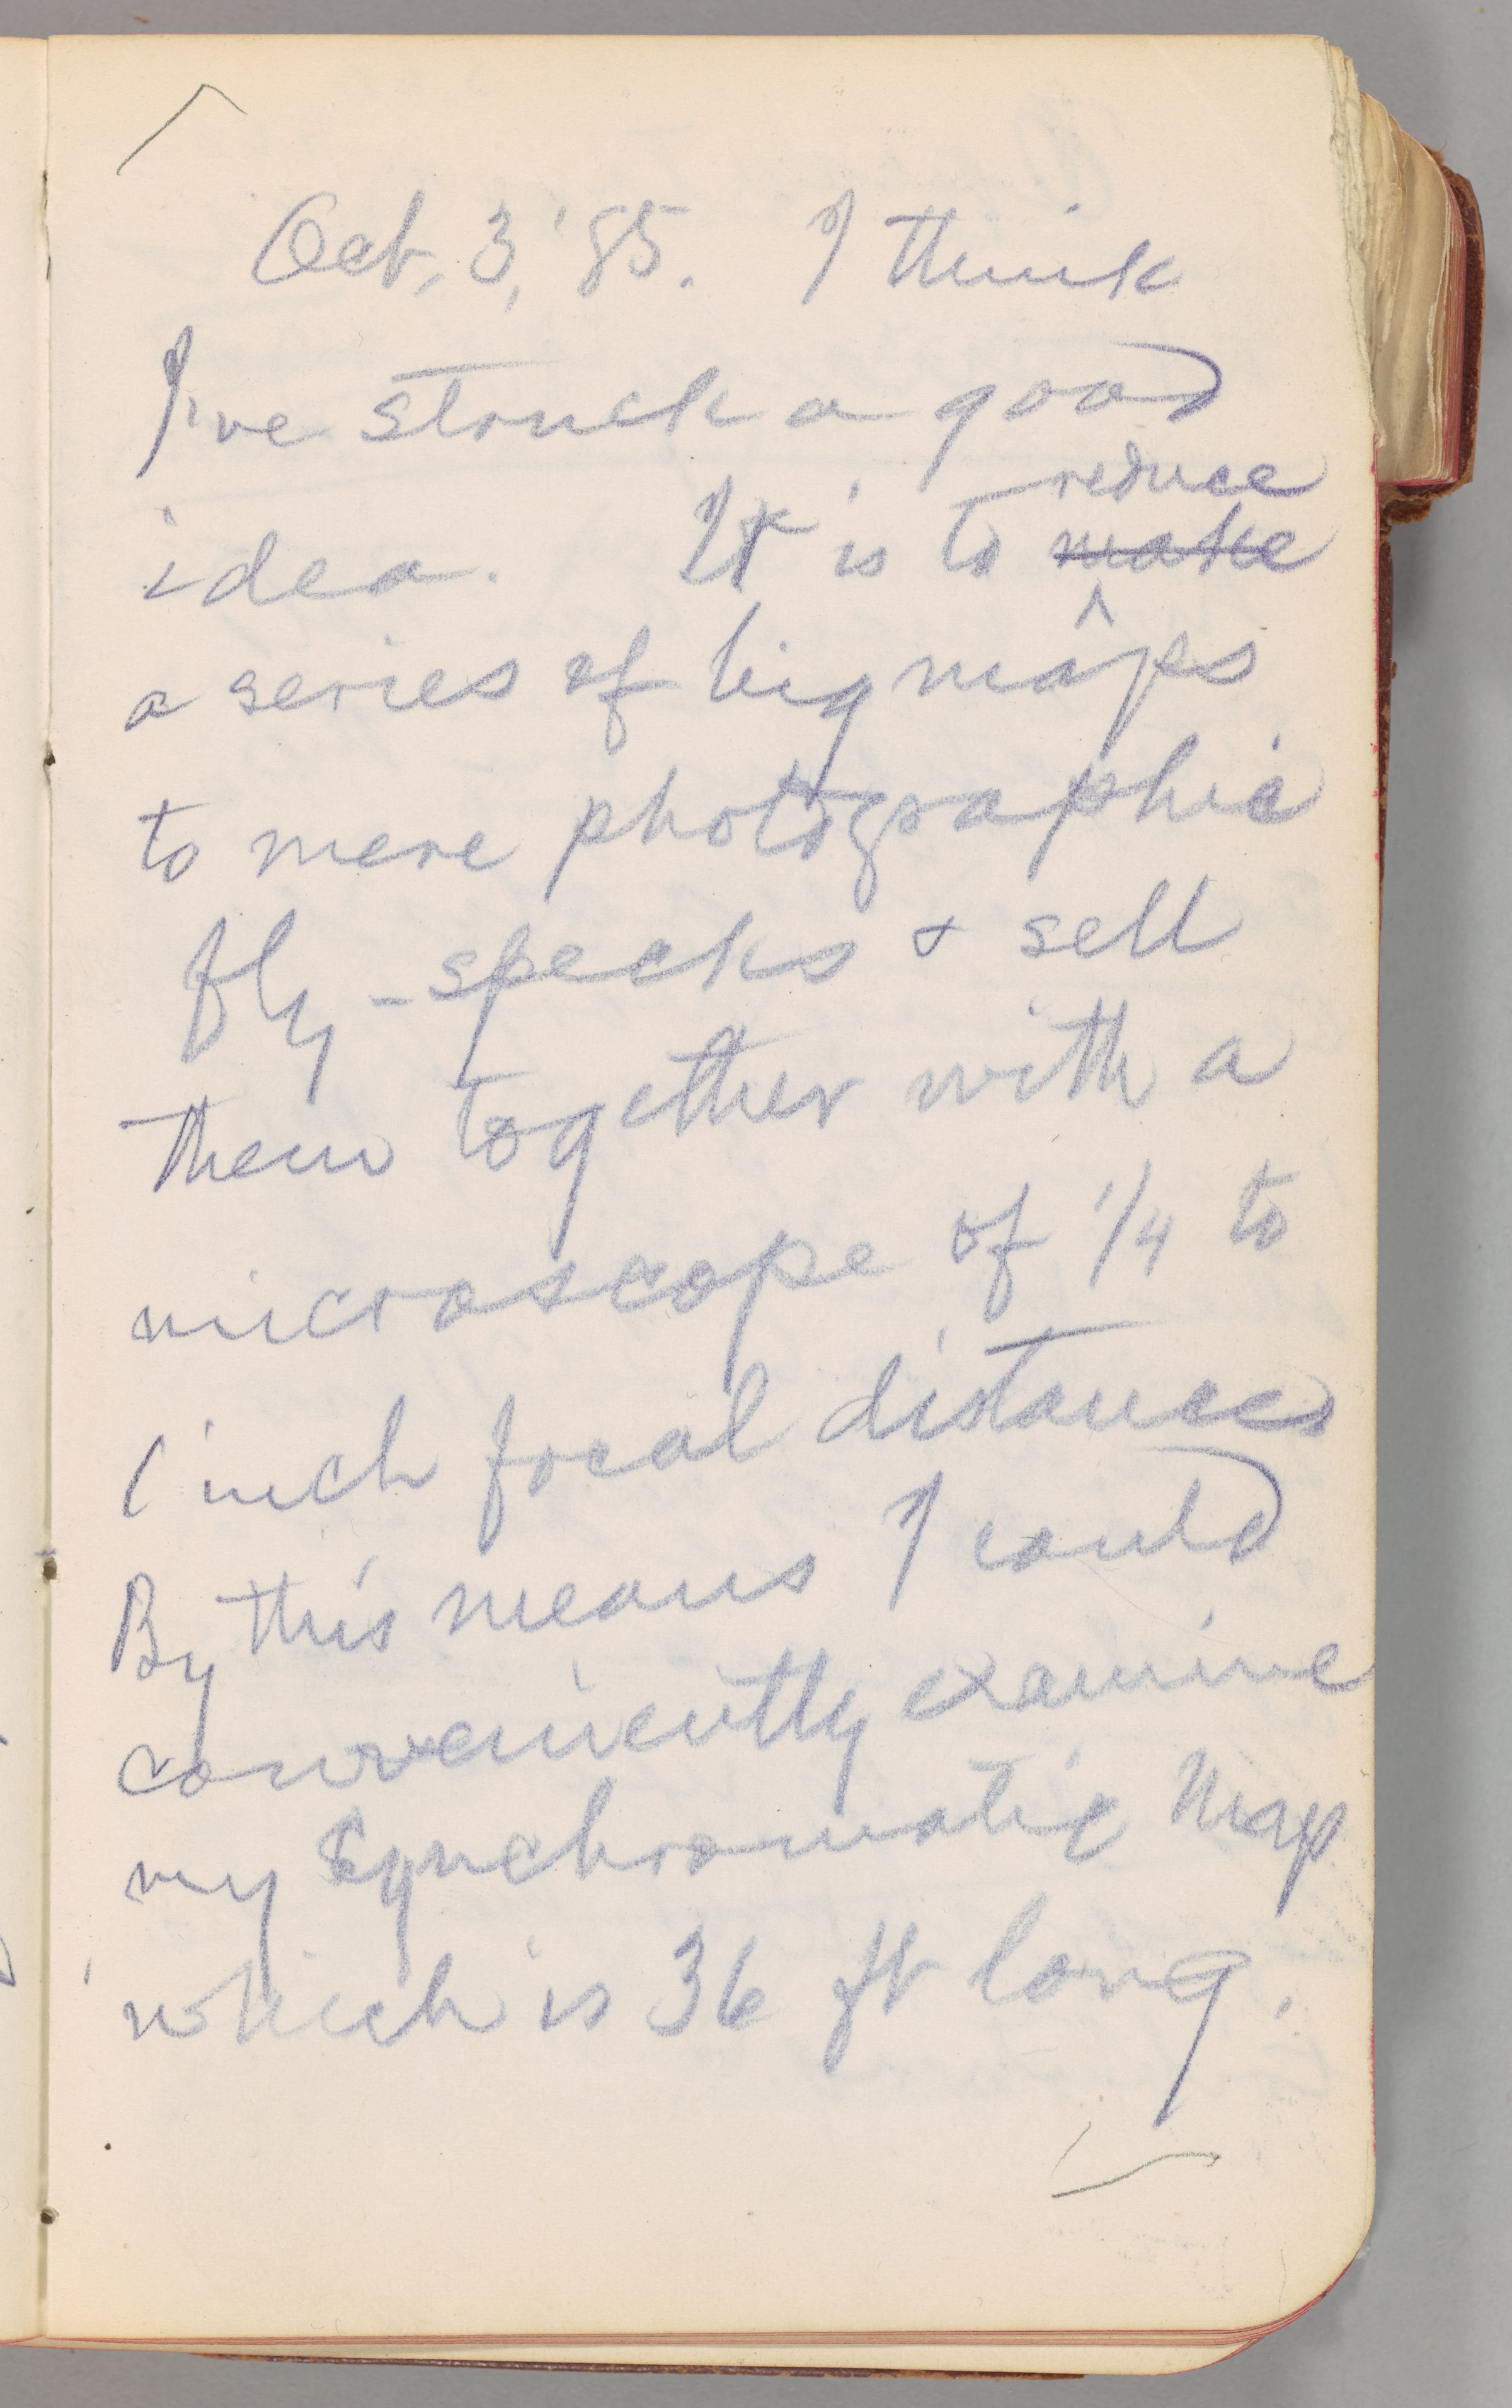 Oct. 3, '85. I think
I've struck a good
idea. It is to ~~make~~ reduce
a series of big maps
to mere photographic
fly-specks & sell
them together with a
microscope of 1/4 to
1 inch focal distance
By this means I could
conveniently examine
my Synchromatic Map
which is 36 ft long.